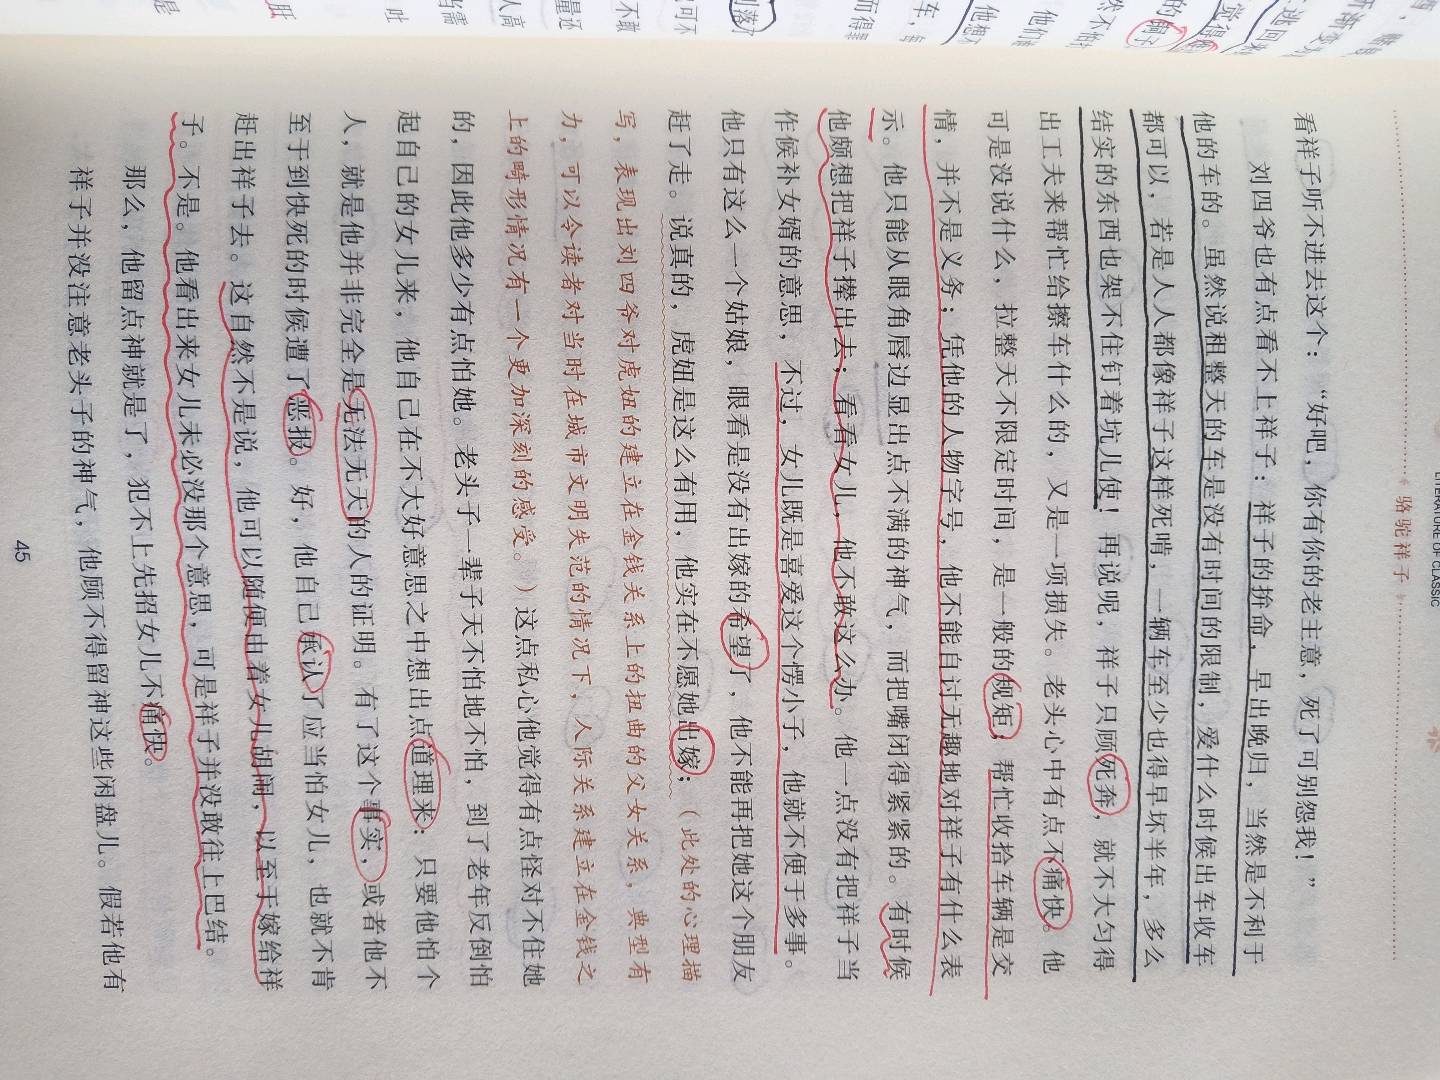 LITERATURE OF CLASSIC
骆驼祥子
看祥子听不进去这个：“好吧，你有你的老主意，死了可别怨我！”
刘四爷也有点看不上祥子：祥子的拚命，早出晚归，当然是不利于
他的车的。虽然说租整天的车是没有时间的限制，爱什么时候出车收车
都可以，若是人人都像祥子这样死啃，一辆车至少也得早坏半年，多么
结实的东西也架不住钉着坑儿使！再说呢，祥子只顾死奔，就不大匀得
出工夫来帮忙给擦车什么的，又是一项损失。老头心中有点不痛快。他
可是没说什么，拉整天不限定时间，是一般的规矩；帮忙收拾车辆是交
情，并不是义务；凭他的人物字号，他不能自讨无趣地对祥子有什么表
示。他只能从眼角唇边显出点不满的神气，而把嘴闭得紧紧的。有时候
他颇想把祥子撵出去；看看女儿，他不敢这么办。他一点没有把祥子当
作候补女婿的意思，不过，女儿既是喜爱这个愣小子，他就不便于多事。
他只有这么一个姑娘，眼看是没有出嫁的希望了，他不能再把她这个朋友
赶了走。说真的，虎妞是这么有用，他实在不愿她出嫁；（此处的心理描
写，表现出刘四爷对虎妞的建立在金钱关系上的扭曲的父女关系，典型有
力，可以令读者对当时在城市文明失范的情况下，人际关系建立在金钱之
上的畸形情况有一个更加深刻的感受。）这点私心他觉得有点怪对不住她
的，因此他多少有点怕她。老头子一辈子天不怕地不怕，到了老年反倒怕
起自己的女儿来，他自己在不大好意思之中想出点道理来：只要他怕个
人，就是他并非完全是无法无天的人的证明。有了这个事实，或者他不
至于到快死的时候遭了恶报。好，他自己承认了应当怕女儿，也就不肯
赶出祥子去。这自然不是说，他可以随便由着女儿胡闹，以至于嫁给祥
子。不是。他看出来女儿未必没那个意思，可是祥子并没敢往上巴结。
那么，他留点神就是了，犯不上先招女儿不痛快。
祥子并没注意老头子的神气，他顾不得留神这些闲盘儿。假若他有
45